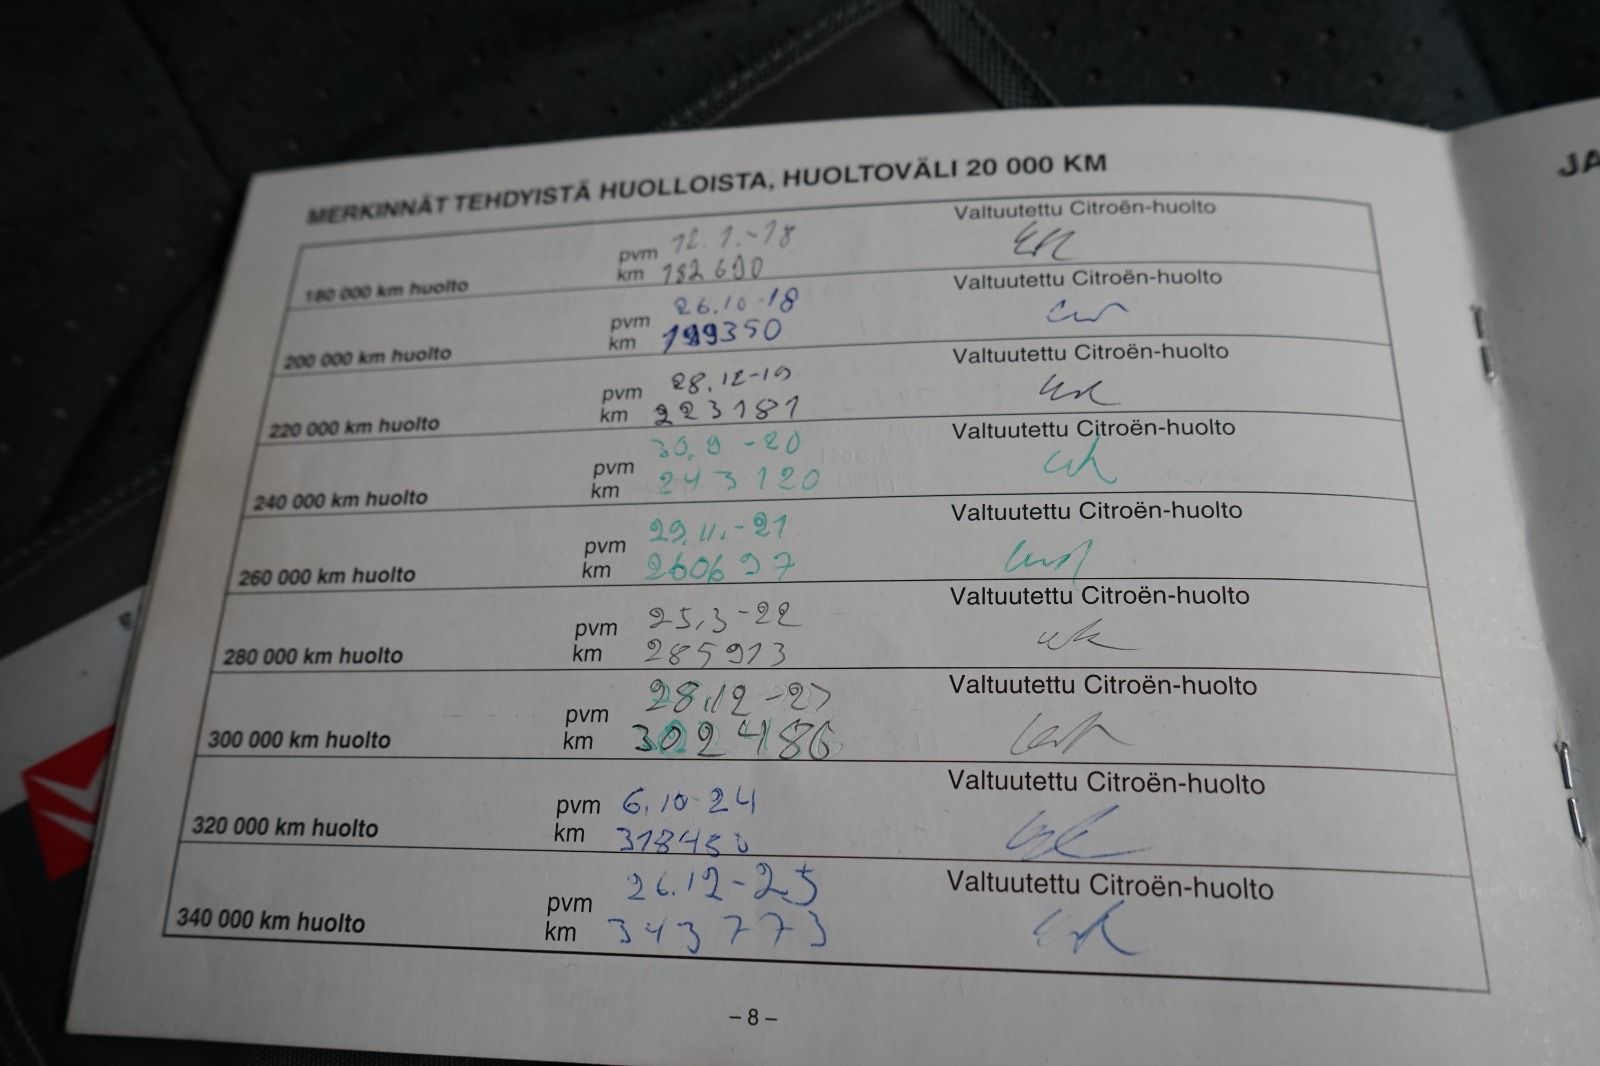 MERKINNÄT TEHDYISTÄ HUOLLOISTA, HUOLTOVÄLI 20 000 KM
180 000 km huolto pvm 12.1.-18 Valtuutettu Citroën-huolto
km 182690
200 000 km huolto pvm 26.10-18 Valtuutettu Citroën-huolto
km 199350
220 000 km huolto pvm 28.12-19 Valtuutettu Citroën-huolto
km 223181
240 000 km huolto pvm 30.9-20 Valtuutettu Citroën-huolto
km 243120
260 000 km huolto pvm 29.11.-21 Valtuutettu Citroën-huolto
km 260697
280 000 km huolto pvm 25.3-22 Valtuutettu Citroën-huolto
km 285913
300 000 km huolto pvm Valtuutettu Citroën-huolto
km 302486
320 000 km huolto pvm 6.10-24 Valtuutettu Citroën-huolto
km 318450
340 000 km huolto pvm 26.12-25 Valtuutettu Citroën-huolto
km 343773
– 8 –
JA